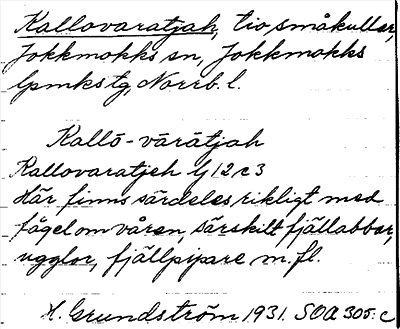 Kallovaratjah, tio småkullar,
Jokkmokks sn, Jokkmokks
lpmkstg, Norrb. l.
Kallō-vārātjah
Kallovaratjeh lj 12 c 3
Här finns särdeles rikligt med
fågel om våren, särskilt fjällabbar,
ugglor, fjällpipare m. fl.
H. Grundström 1931. SOA 305. c